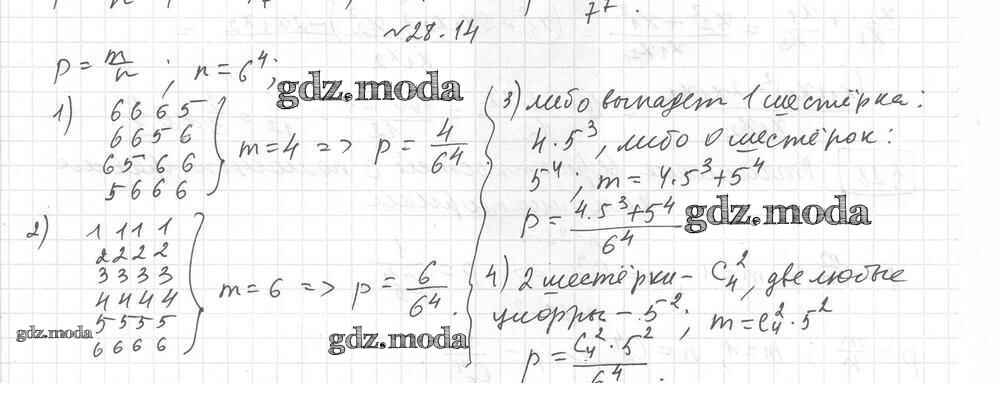 77.
№28.14
p = m/n ; n = 6^4;
gdz.moda
1) 6 6 6 5
6 6 5 6
6 5 6 6
5 6 6 6
m = 4 => p = 4/6^4.
2) 1 1 1 1
2 2 2 2
3 3 3 3
4 4 4 4
5 5 5 5
6 6 6 6
m = 6 => p = 6/6^4.
gdz.moda
gdz.moda
3) либо выпадет 1 шестёрка:
4·5^3, либо 0 шестёрок:
5^4; m = 4·5^3+5^4
p = (4·5^3+5^4)/6^4
gdz.moda
4) 2 шестёрки - C_4^2, две любые
цифры - 5^2; m = C_4^2 · 5^2
p = (C_4^2 · 5^2)/6^4.